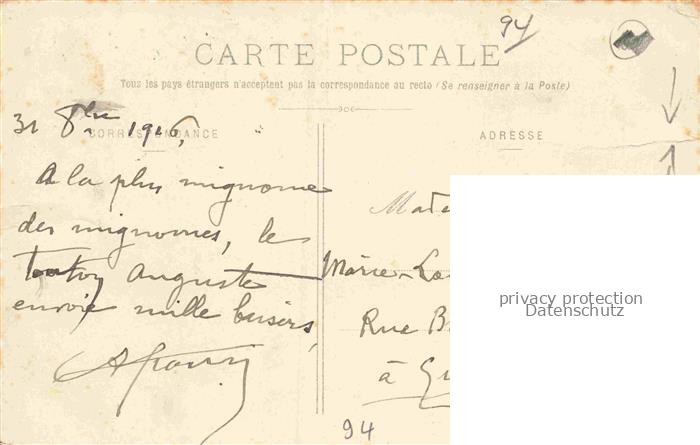 94
CARTE POSTALE
Tous les pays étrangers n'acceptent pas la correspondance au recto (Se renseigner à la Poste)
31 8bre 1916,
CORRESPONDANCE
ADRESSE
A la plus mignonne
des mignonnes, le
tonton Auguste
envoie mille baisers,
Marie
Rue
à
94
privacy protection
Datenschutz